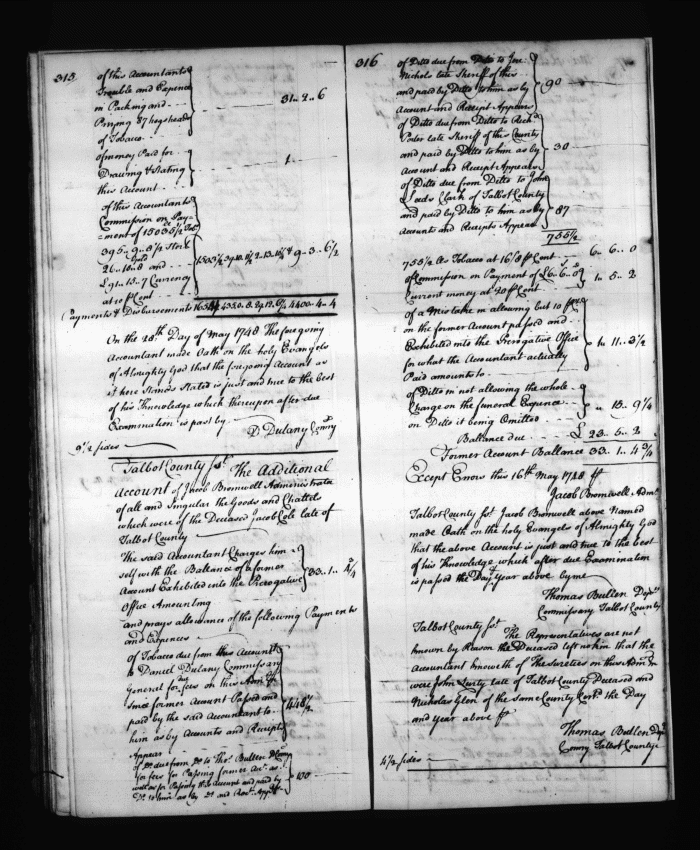 315
of this Accountants
Trouble and Expence
in Packing and
Prizing 87 hogsheads
of Tobacco
31.. 2.. 6
of money Paid for
Drawing & Stating
this Account
1..
of this Accountants
Commission on Pay-
=ment of 15035½ Tob
395.. 9.. 8½ Sterl
26.. 18.. 0 Gold and
L91.. 13.. 7 Currency
at 10 ℔ Cent
9.. 3.. 6½
Payments & Disbursements
On the 28th Day of May 1748 The foregoing
Accountant made Oath on the holy Evangels
of Almighty God that the foregoing Account as
it here Stands Stated is just and true to the best
of his Knowledge which thereupon after due
Examination is past by
D Dulany Comry
9½ sides
Talbot County sst. The Additional
account of Jacob Bromwell Administrator
of all and Singular the Goods and Chattels
which were of the Deceased Jacob Cole late of
Talbot County
The said Accountant Charges him
self with the Ballance of a former
Account Exhibited into the Prerogative
Office Amounting
33.. 1.. 4¾
and prays allowance of the following Payments
and Expences
Of Tobacco due from this Accountt
to Daniel Dulany Commissary
General for due fees on this Admn
since former Account Passed and
paid by the said Accountant to
him as by Accounts and Receipt
Appear
448½
of Do due from Do to Thos. Bullen D Comry
for fees for Passing former Acct. as
well as for Passing this Account and paid by
Do. to him as by Do and Rect. Appear
100
316
of Ditto due from Ditto to Jno:
Nichols late Sheriff of this
and paid by Ditto to him as by
Account and Receipt Appears
90
of Ditto due from Ditto to Rich
Porter late Sheriff of this County
and paid by Ditto to him as by
Account and Receipt Appears
30
of Ditto due from Ditto to John
Leeds Clerk of Talbot County
and paid by Ditto to him as by
Accounts and Receipts Appear
87
755½
755½ lb Tobacco at 16/8 ℔ Cent
6.. 6.. 0
of Commission on Payment of L6.. 6.. 0
Current money at 20 ℔ Cent
1.. 5.. 2
of a Mistake in allowing but 10 ℔ Ct
on the former Account passed and
Exhibited into the Prerogative Office
for what the Accountant actually
Paid amounts to
11.. 3½
of Ditto in not allowing the whole
Charge on the funeral Expence
on Ditto it being Omitted
15.. 9¼
Ballance due
£ 23.. 5.. 2
Former Account Ballance 33.. 1.. 4¾
Except Errors this 16th May 1748 ℔
Jacob Bromwell Admr.
Talbot County sst. Jacob Bromwell above Named
made Oath on the holy Evangels of Almighty God
that the above Account is just and true to the best
of his Knowledge which after due Examination
is passed the Day & year above by me
Thomas Bullen Depty
Commissary Talbot County
Talbot County sst.
The Representatives are not
known by Reason the Deceased left no kin that the
Accountant knoweth of The Sureties on this Admn
were John Lurty late of Talbot County Deceased and
Nicholas Glen of the same County the Day
and year above ℔
Thomas Bullen Depy
Comry Talbot County
4½ sides